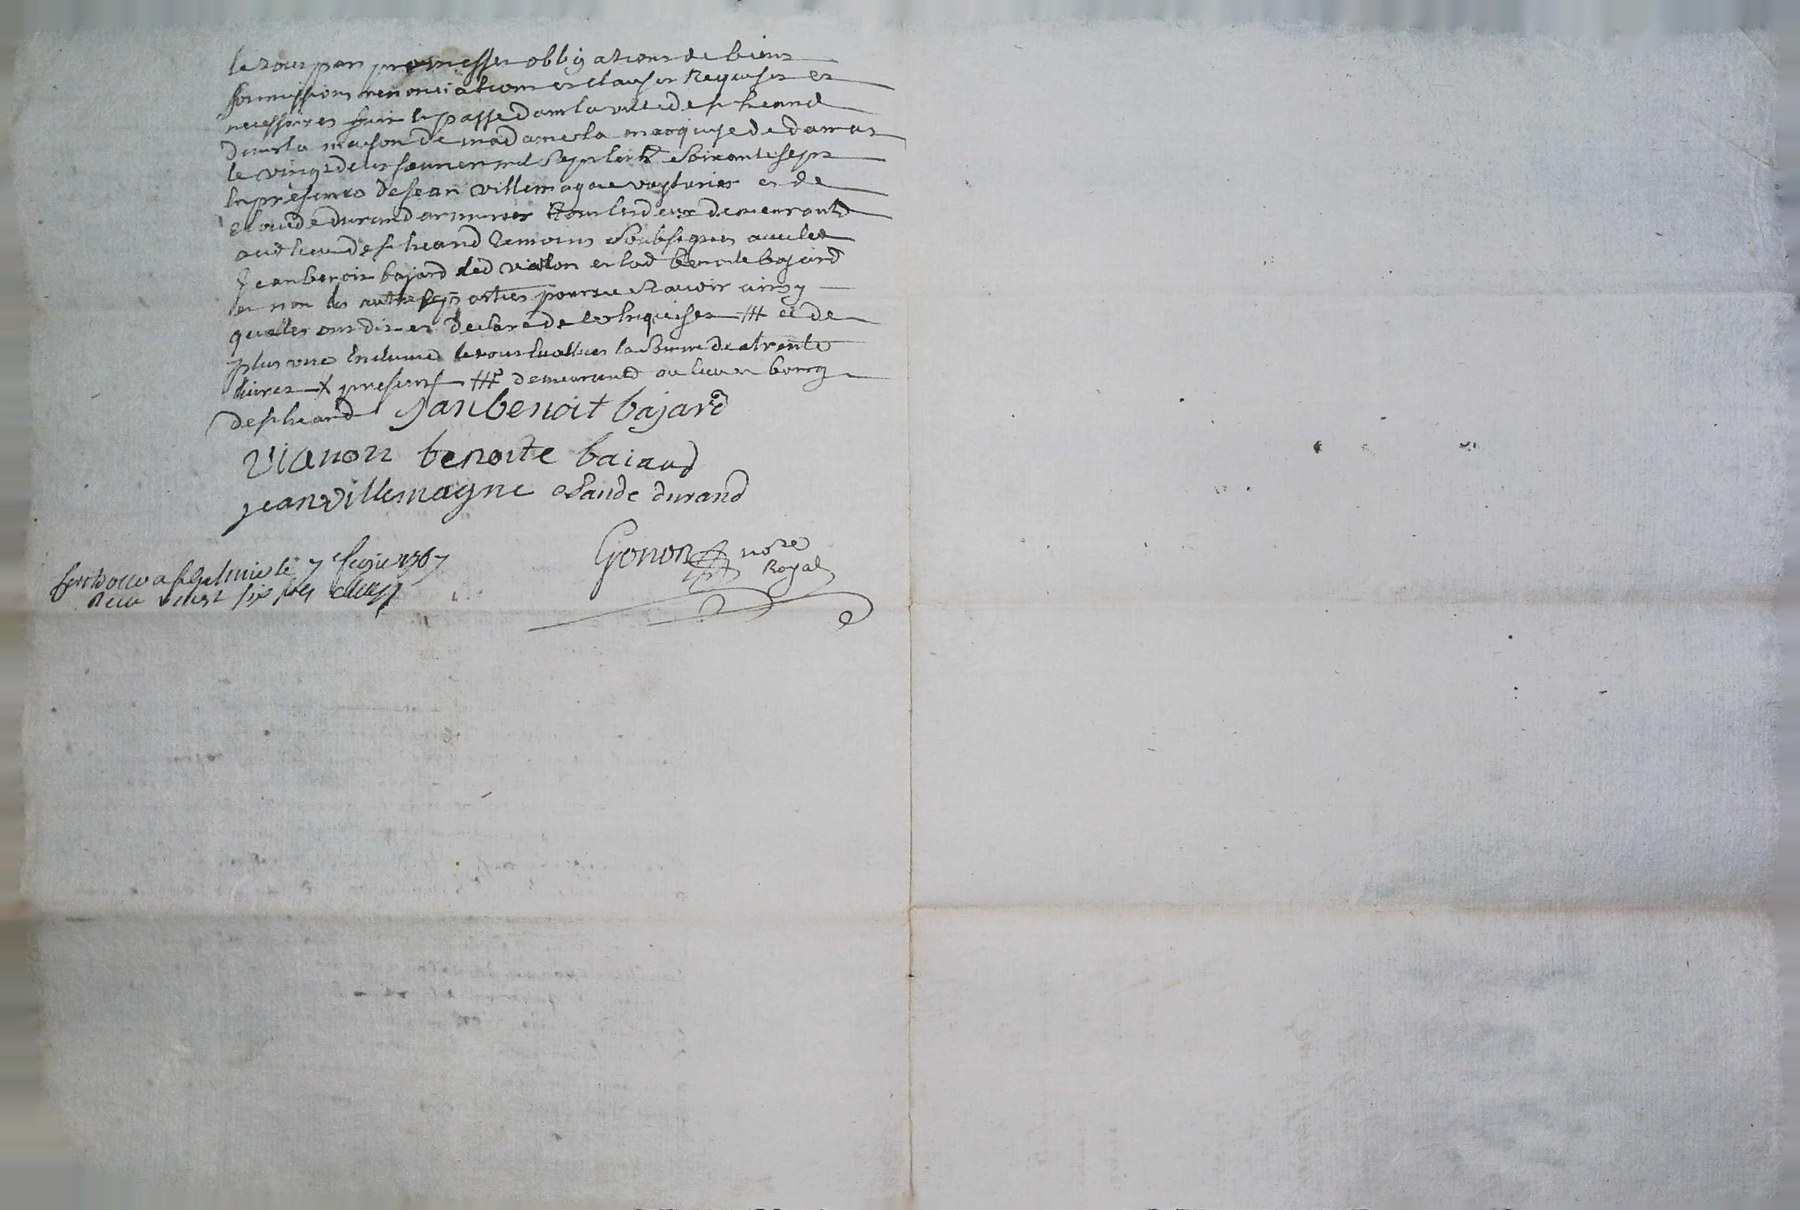 le tout par promesses obligations de biens
soumissions renonciations et clauses Requises et
necessaires fait et passé dans la ville de st heand
dans la maison de madame la marquise de damas
le vingt deux janvier mil sept cent soixante sept
En presences de jean villemagne voyturier et de
claude durand armurier tous les deux demeurants
aud lieu de st heand temoins soubsignes avec led
Jean benoit bajard led vianon et lad benoite bajard
et non les autres parties pour ne scavoir ainsy
quelles ont dit et declaré de ce Enquises et de
plus une Enclume le tout Evallué la somme de trente
livres present demeurant au lieu et bourg
de st heand Jan benoit bajard
vianon benoite baiard
jean villemagne Claude durand
Gonon nore
Royal
a st Galmier le 7 1767
Reçu vingt six sols